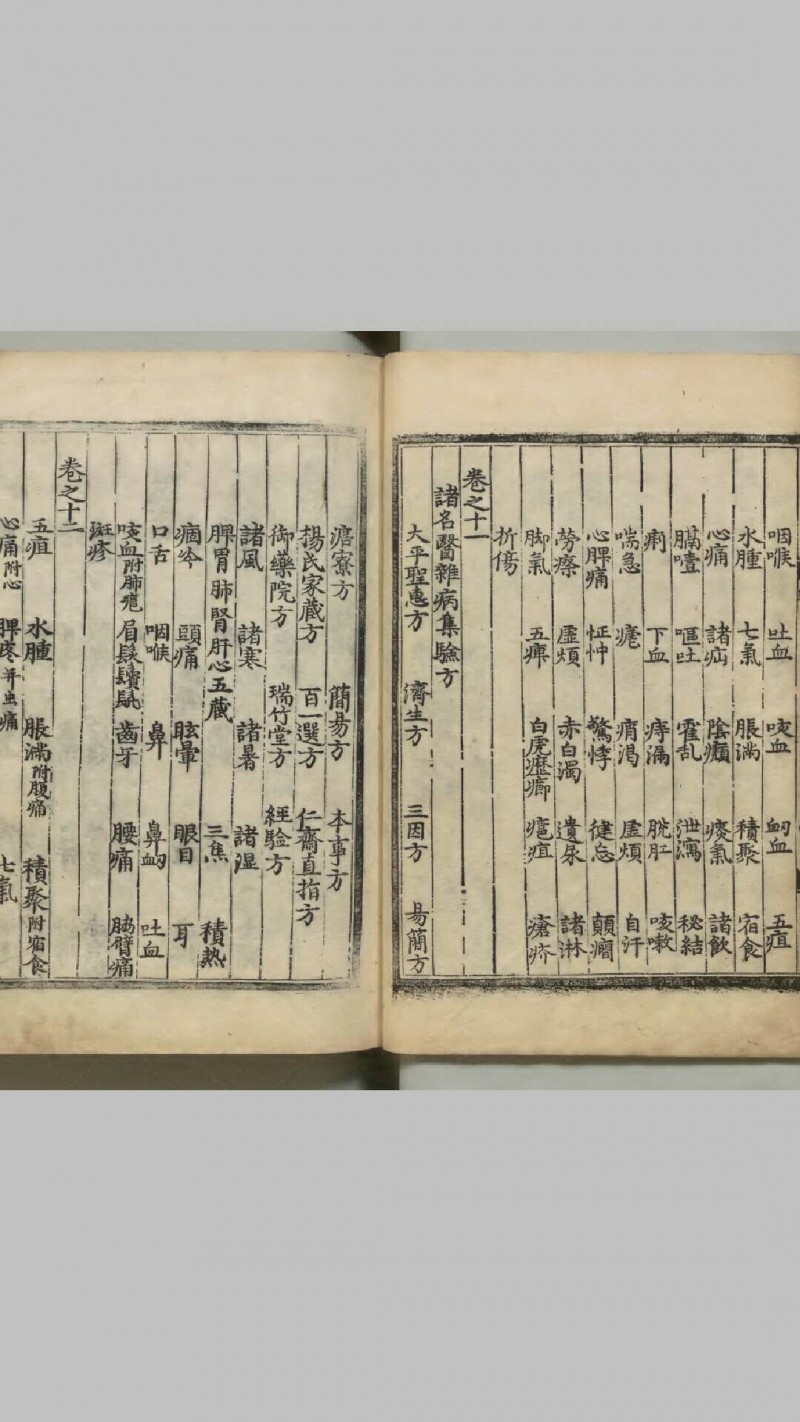 咽喉 吐血 咳血 衂血 五疸
水腫 七氣 脹滿 積聚 宿食
心痛 諸疝 陰癩 痰氣 諸飲
膈噎 嘔吐 霍乱 泄瀉 秘結
痢 下血 痔漏 脱肛 咳嗽
喘急 瘧 痟渇 虚煩 自汗
心脾痛 怔忡 驚悸 健忘 顛癎
勞瘵 虚煩 赤白濁 遺尿 諸淋
脚氣 五痺 白虎癧癤 瘡疽 瘡疥
折傷
卷之十一
諸名醫雜病集驗方
大平聖惠方 濟生方 三因方 易簡方
澹寮方 簡易方 本事方
楊氏家藏方 百一選方 仁齋直指方
御藥院方 瑞竹堂方 經驗方
諸風 諸寒 諸暑 諸湿
脾胃肺腎肝心五藏 三焦 積熱
痼冷 頭痛 眩暈 眼目 耳
口舌 咽喉 鼻 鼻衂 吐血
咳血附肺 眉髮鬚 齒牙 腰痛 脇臂痛
斑疹
卷之十二
五疸 水腫 脹滿附腹痛 積聚附宿食
心痛附心 脾疼并虫痛 七氣